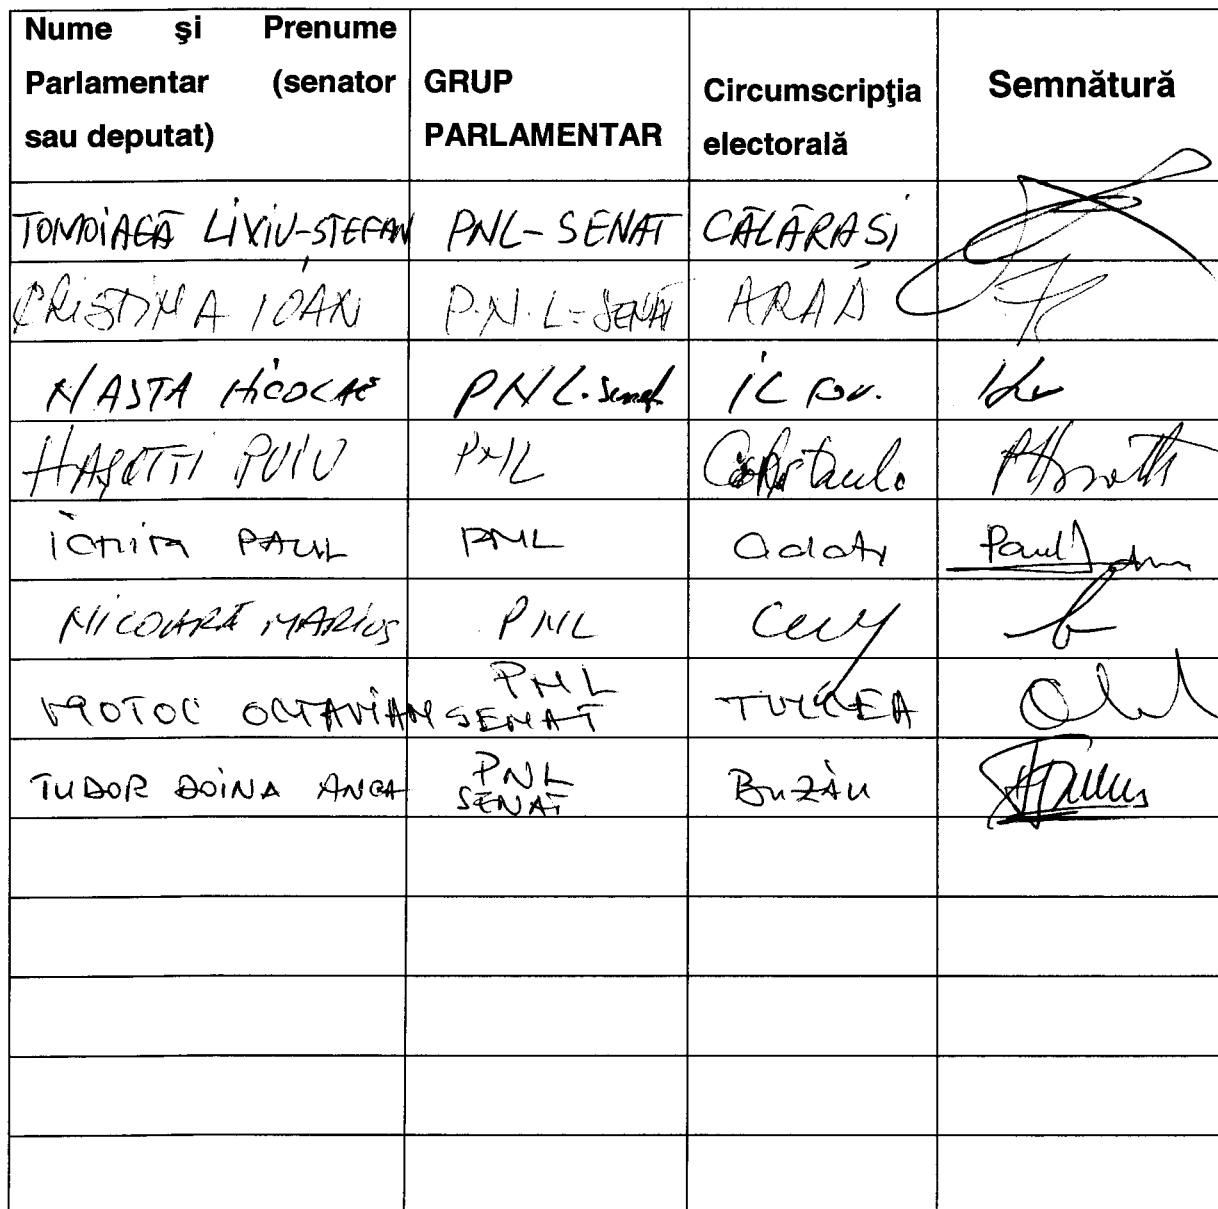 Nume şi Prenume
Parlamentar (senator
sau deputat)
GRUP
PARLAMENTAR
Circumscripţia
electorală
Semnătură
TOMOIAGĂ LIVIU-STEFAN PNL-SENAT CĂLĂRASI
CRISTINA IOAN P.N.L-SENAT ARAD
NASTA NICOLAE PNL-Senat ILFOV.
HAŞOTTI PUIU PNL Constanţa
ICHIM PAUL PNL
NICOARĂ MARIUS PNL Cluj
MOTOC OCTAVIAN PNL SENAT TULCEA
TUDOR DOINA ANCA PNL SENAT BuZĂu